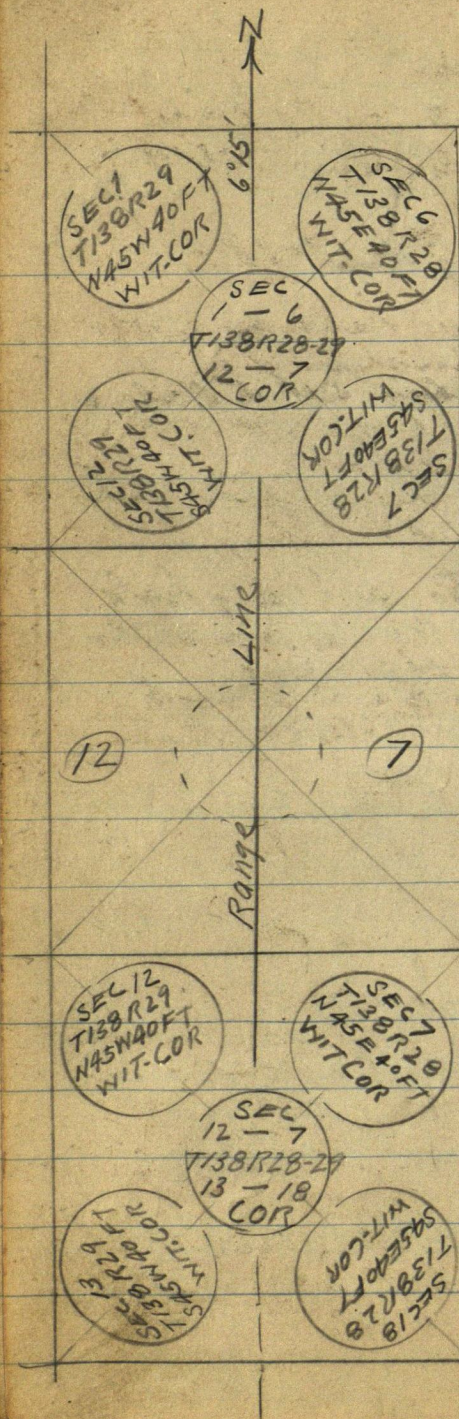 N
6°15'
SEC 1
T138R29
N45W40FT
WIT-COR
SEC 6
T138R28
N45E40FT
WIT-COR
SEC
1 — 6
T138R28-29
12 — 7
COR
SEC 12
T138R29
S45W40FT
WIT.COR
SEC 7
T138R28
S45E40FT
WIT.COR
Range Line
12
7
SEC 12
T138R29
N45W40FT
WIT-COR
SEC 7
T138R28
N45E40FT
WITCOR
SEC
12 — 7
T138R28-29
13 — 18
COR
SEC 13
T138R29
S45W40FT
WIT.COR
SEC 18
T138R28
S45E40FT
WIT-COR